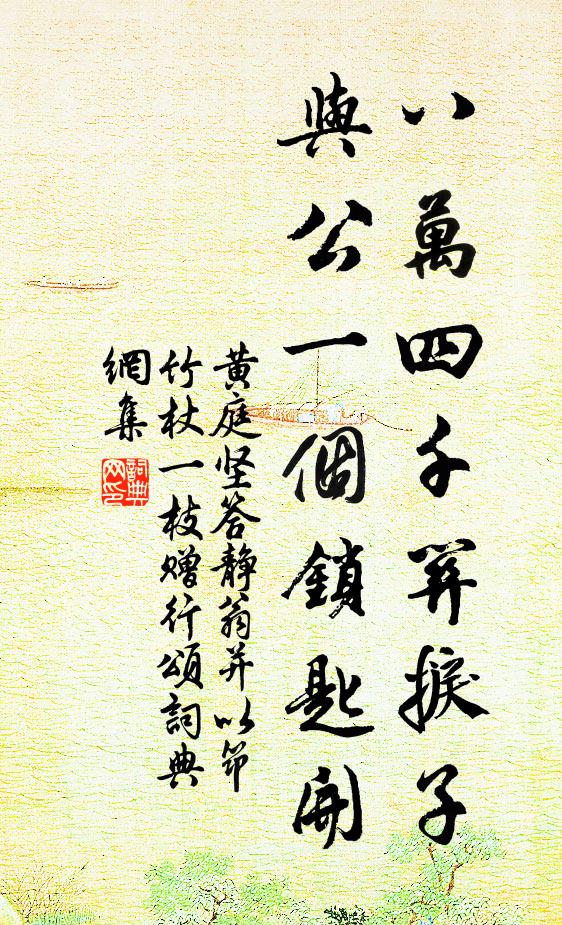 八萬四千關捩子
與公一個鎖匙開
黄庭坚答静翁并以筇
竹杖一枝赠行頌詞典
網集
詞典網印